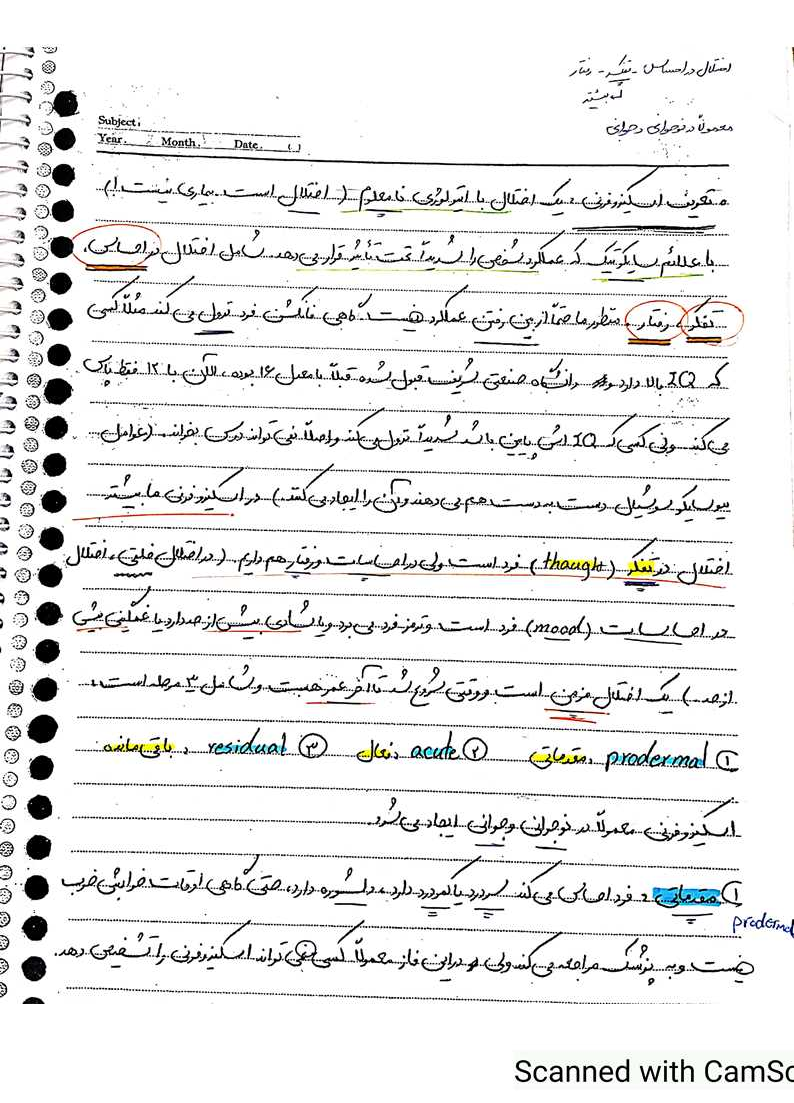 اختلال در احساس - تفکر - رفتار
بیشتر
معمولاً در نوجوانی و جوانی
Subject:
Year. Month. Date. ( )
تعریف اسکیزوفرنی: یک اختلال با اتیولوژی نامعلوم (اختلال است. بیماری نیست!)
با علائم سایکوتیک که عملکرد شخص را شدیداً تحت تأثیر قرار می دهد. شامل اختلال در احساس،
تفکر، رفتار. منظور ما حتماً از بین رفتن عملکرد نیست. گاهی فانکشن فرد نزول می کند مثلاً کسی
که IQ بالا دارد و دانشگاه صنعتی شریف قبول شده قبلاً با معدل ۱۶ بوده، الان با ۱۲ فقط پاس
می کند. ولی کسی که IQ اش پایین باشد شدیداً نزول می کند و اصلاً نمی تواند درس بخواند. (عوامل
بیوسایکوسوشیال دست به دست هم می دهند و آن را ایجاد می کنند.) در اسکیزوفرنی ما بیشتر
اختلال در تفکر (thought) فرد است ولی در احساسات و رفتار هم داریم. (در اختلال خلقی، اختلال
در احساسات (mood) فرد است و ترمز فرد می برد و یا شادی بیش از حد دارد یا غمگینی بیش
از حد.) یک اختلال مزمن است و وقتی شروع شد تا آخر عمر هست و شامل ۳ مرحله است:
① prodermal: مقدماتی ② acute: فعال ③ residual: باقی مانده
اسکیزوفرنی معمولاً در نوجوانی و جوانی ایجاد می شود.
① مقدماتی: فرد احساس می کند سردرد یا کمردرد دارد، دلشوره دارد، حتی گاهی اوقات خوابش خوب
prodermal
نیست و به پزشک مراجعه می کند ولی در این فاز معمولاً کسی نمی تواند اسکیزوفرنی را تشخیص دهد.
Scanned with CamSc